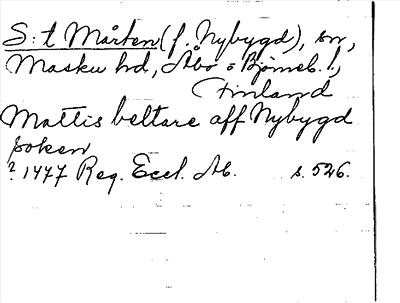 S:t Mårten (f. Nybygd), sn,
Masku hd, Åbo o Björneb. l,
Finland
Mattis beltare aff Nybygd
soken
? 1477 Reg. Eccl. Ab. s. 526.